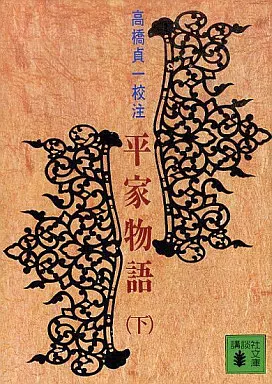 高橋貞一校注
平家物語
(下)
講談社
文庫